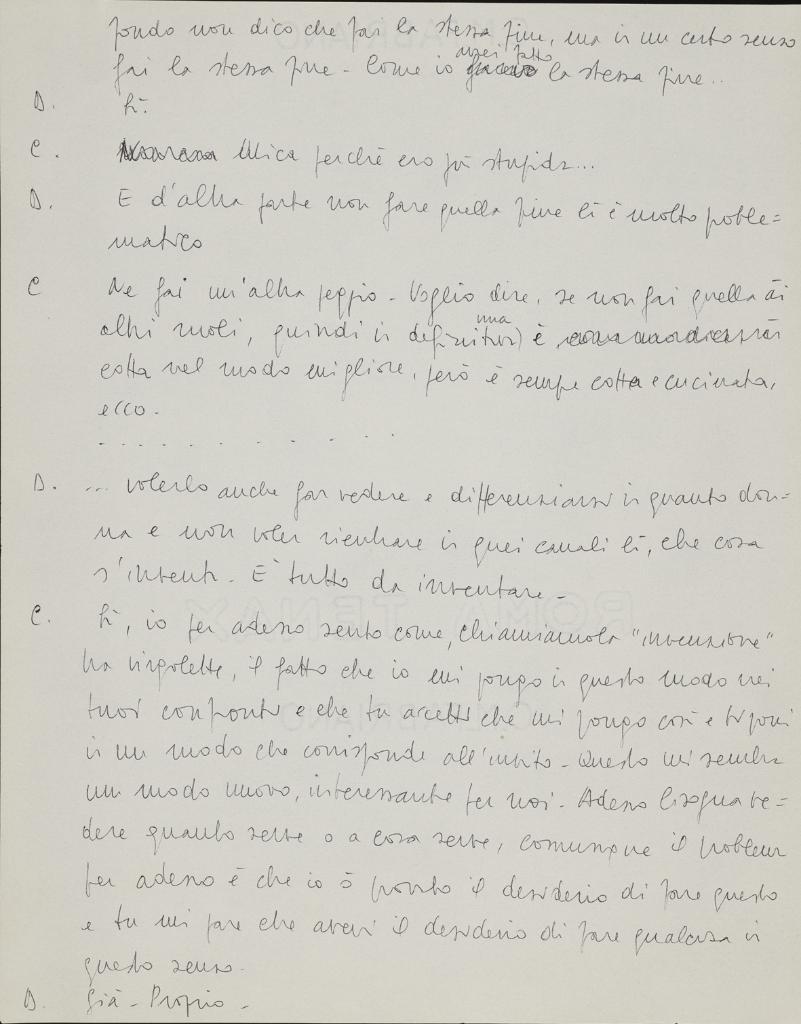 fondo non dico che fai la stessa fine, ma in un certo senso
fai la stessa fine - Come io avrei fatto la stessa fine..
D. Sì.
C. Mica perché ero più stupida...
D. E d'altra parte non fare quella fine lì è molto proble=
matico
C Ne fai un'altra peggio - Voglio dire, se non fai quella ài
altri ruoli, quindi in definitiva una è
cotta nel modo migliore, però è sempre cotta e cucinata,
ecco.
. . . . . . . . . .
D. ... volerlo anche far vedere e differenziarsi in quanto don=
na e non voler rientrare in quei canali lì, che cosa
s'inventi. E' tutto da inventare -
C. Sì, io per adesso sento come, chiamiamola "invenzione"
tra virgolette, il fatto che io mi pongo in questo modo nei
tuoi confronti e che tu accetti che mi pongo così e ti poni
in un modo che corrisponde all'invito - Questo mi sembra
un modo nuovo, interessante per noi. Adesso bisogna ve=
dere quanto serve o a cosa serve, comunque il problema
per adesso è che io ò provato il desiderio di fare questo
e tu mi pare che avevi il desiderio di fare qualcosa in
questo senso.
D. Già - Proprio -